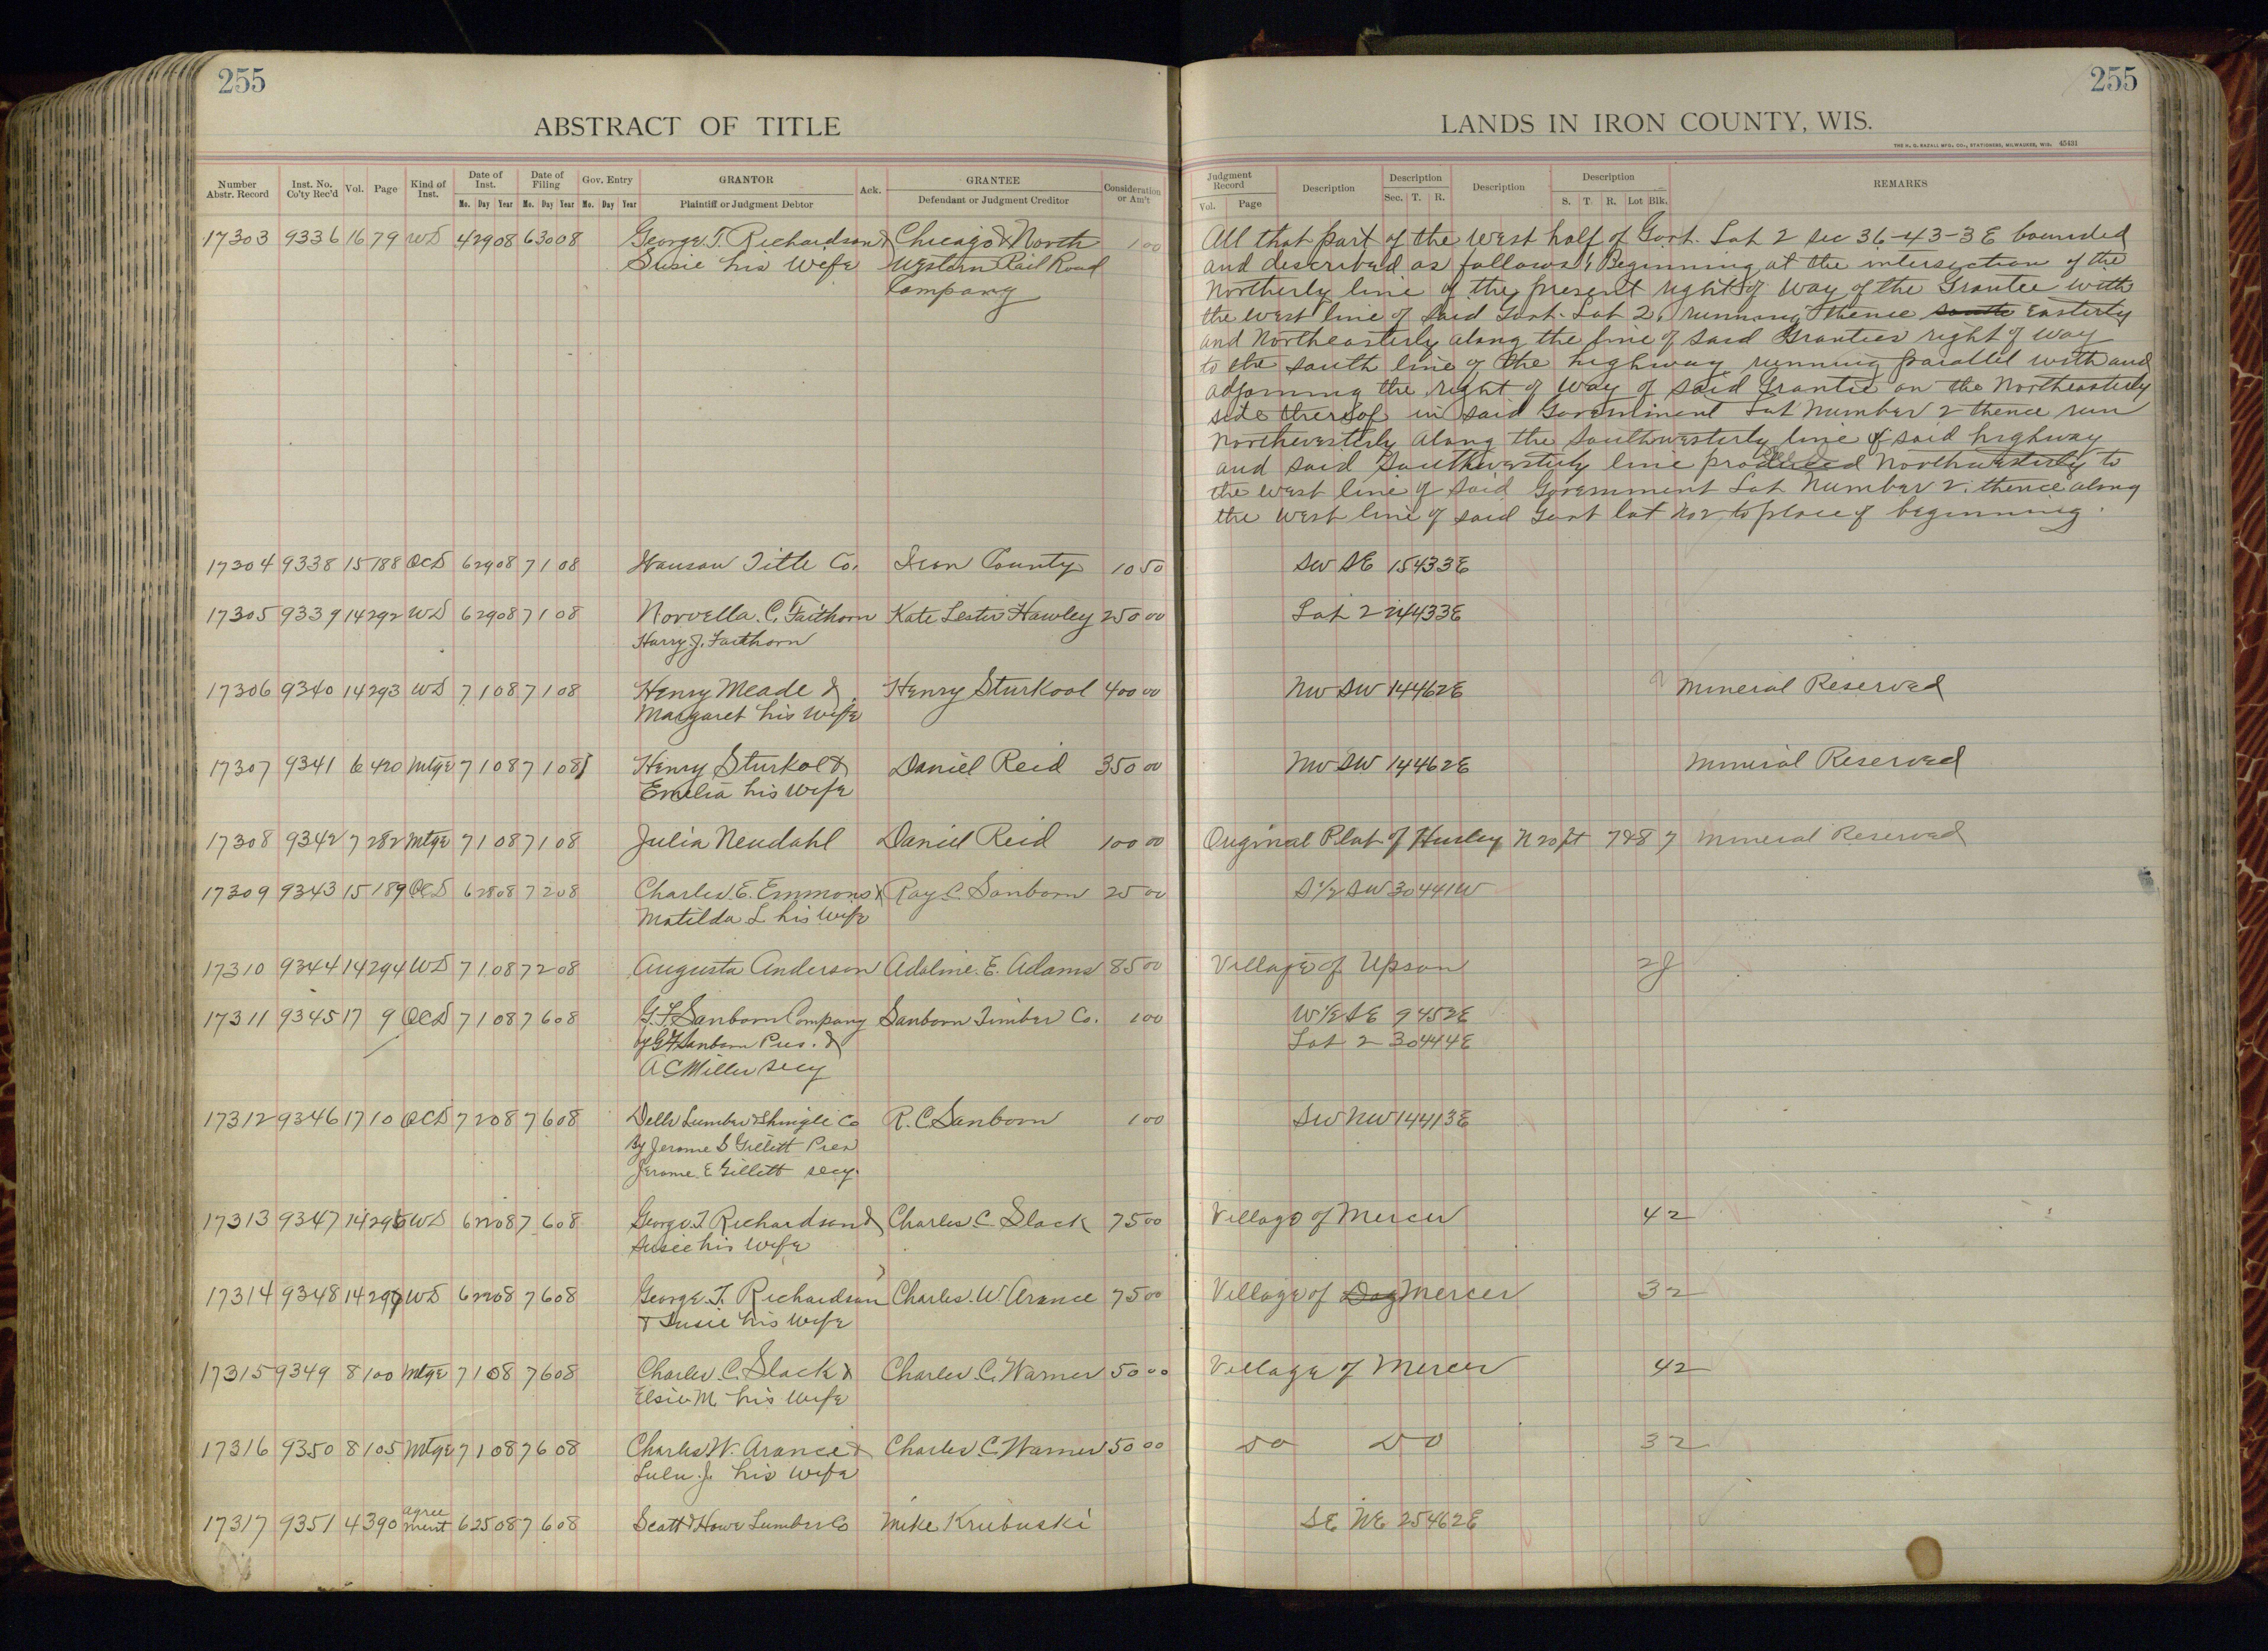 255
ABSTRACT OF TITLE
Number Abstr. Record Inst. No. Co'ty Rec'd Vol. Page Kind of Inst. Date of Inst. Date of Filing Gov. Entry GRANTOR Ack. GRANTEE Consideration or Am't
Mo. Day Year Mo. Day Year Mo. Day Year Plaintiff or Judgment Debtor Defendant or Judgment Creditor
17303 9336 16 79 WD 4 29 08 6 30 08 George T. Richardson & Chicago & North 1 00
Susie his Wife Western Rail Road
Company
17304 9338 15 188 QCD 6 29 08 7 1 08 Wausau Title Co. Iron County 10 50
17305 9339 14 292 WD 6 29 08 7 1 08 Norvella C. Faithorn Kate Lester Hawley 250 00
Harry J. Faithorn
17306 9340 14 293 WD 7 1 08 7 1 08 Henry Meade & Henry Sturkool 400 00
Margaret his Wife
17307 9341 6 420 Mtge 7 1 08 7 1 08 Henry Sturkol & Daniel Reid 350 00
Emelia his Wife
17308 9342 7 282 Mtge 7 1 08 7 1 08 Julia Neudahl Daniel Reid 100 00
17309 9343 15 189 QCD 6 28 08 7 2 08 Charles E. Emmons & Ray C. Sanborn 25 00
Matilda L his Wife
17310 9344 14 294 WD 7 1 08 7 2 08 Augusta Anderson Adaline E. Adams 85 00
17311 9345 17 9 QCD 7 1 08 7 6 08 G.F. Sanborn Company Sanborn Timber Co. 1 00
by G F Sanborn Pres. &
A C Miller Secy
17312 9346 17 10 QCD 7 2 08 7 6 08 Dells Lumber & Shingle Co R. C Sanborn 1 00
By Jerome S Gillett Pres
Jerome E Gillett Secy.
17313 9347 14 295 WD 6 22 08 7 6 08 George T Richardson & Charles C. Slack 75 00
Susie his Wife
17314 9348 14 296 WD 6 22 08 7 6 08 George T. Richardson Charles W Arance 75 00
& Susie his Wife
17315 9349 8 100 Mtge 7 1 08 7 6 08 Charles C. Slack & Charles C. Warner 50 00
Elsie M his Wife
17316 9350 8 105 Mtge 7 1 08 7 6 08 Charles W. Arance & Charles C Warner 50 00
Lulu J. his Wife
17317 9351 4 390 agree ment 6 25 08 7 6 08 Scott & Howe Lumber Co Mike Krubuski
255
LANDS IN IRON COUNTY, WIS.
THE H. G. RAZALL MFG. CO., STATIONERS, MILWAUKEE, WIS. 45431
Judgment Record Description Description Description Description REMARKS
Vol. Page Sec. T. R. S. T. R. Lot Blk.
All that part of the West half of Govt. Lot 2 Sec 36-43-3E bounded
and described as follows: Beginning at the intersection of the
Northerly line of the present right of Way of the Grantee with
the West line of said Govt. Lot 2, running thence south Easterly
and Northeasterly along the line of said Grantees right of way
to the South line of the highway running parallel with and
adjoining the right of Way of said Grantee on the Northeasterly
side thereof in said Government Lot Number 2 thence run
Northwesterly along the Southwesterly line of said highway
and said Southwesterly line produced Northwesterly to
the West line of said Government Lot Number 2. thence along
the West line of said Govt lot No 2 to place of beginning.
SW SE 15 43 3E
Lot 2 24 43 3E
NW SW 14 46 2E Mineral Reserved
NW SW 14 46 2E Mineral Reserved
Original Plat of Hurley N 20 ft 7&8 7 Mineral Reserved
S 1/2 SW 30 44 1W
Village of Upson
W 1/2 SE 9 45 2E
Lot 2 30 44 4E
SW NW 14 41 3E
Village of Mercer 4 2
Village of Dog Mercer 3 2
Village of Mercer 4 2
Do Do 3 2
SE NE 25 46 2E